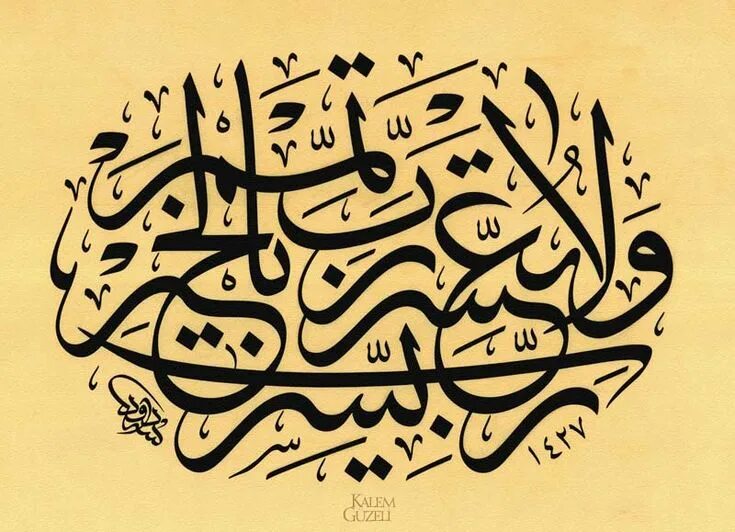 رَبِّ يَسِّرْ
وَلَا تُعَسِّرْ رَبِّ تَمِّمْ بِالْخَيْرِ
١٤٢٧
KALEM
GUZELI